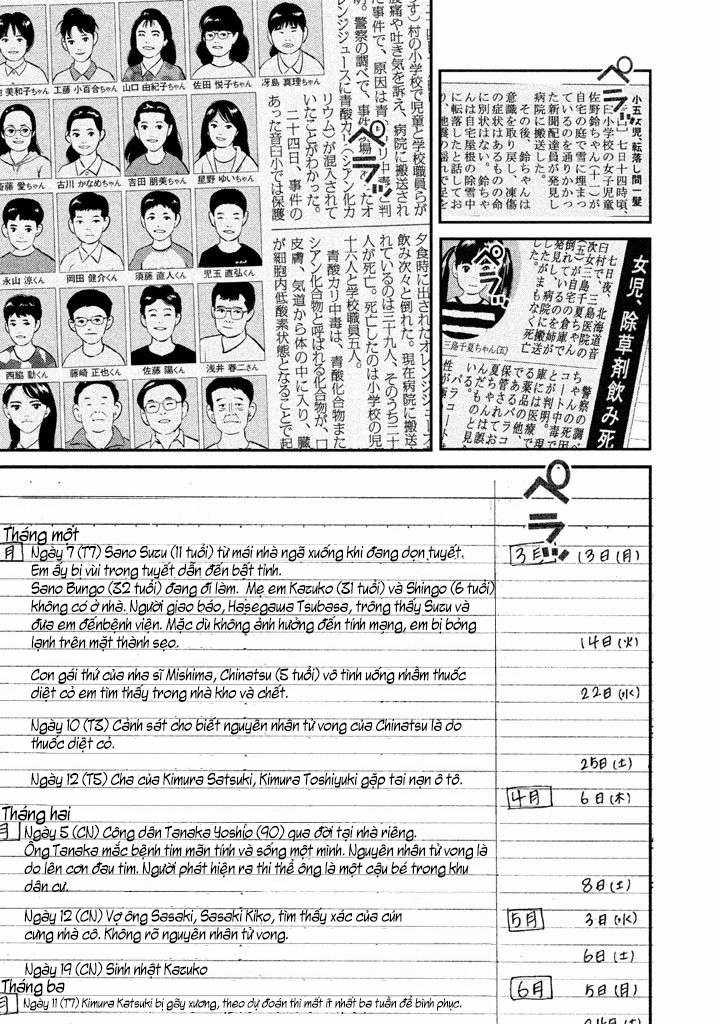 ペラッ
小五女児、転落し間一髪
七日十四時頃、
臼小学校の女子児童
佐野鈴ちゃん(十一)が
自宅の庭で雪に埋まっ
ているのを通りかかっ
た新聞配達員が発見し
病院に搬送した。
その後、鈴ちゃんは
意識を取り戻し、凍傷
の症状はあるものの命
に別状はない。鈴ちゃ
んは自宅屋根の除雪中
に転落したと話してお
ペラッ
村の小学校で児童と学校職員らが
腹痛や吐き気を訴え、病院に搬送され
た事件で、原因は青
中毒と判
警察の調べで、事件
たオ
レンジジュースに青酸カリ(シアン化カ
リウム)が混入されて
いたことがわかった。
二十四日、事件の
あった音臼小では保護
夕食時に出されたオレンジジュース
飲み次々と倒れた。現在病院に搬送
れているのは三十九人、そのうち二十
人が死亡。死亡したのは小学校の児
十六人と学校職員五人。
青酸カリ中毒は、青酸化合物また
シアン化合物と呼ばれる化合物が、口
皮膚、気道から体の中に入り、臓
が細胞内低酸素状態となることで起
美和子ちゃん
工藤 小百合ちゃん
山口 由紀子ちゃん
佐田 悦子ちゃん
冴島 真理ちゃん
斎藤 愛ちゃん
古川 かなめちゃん
吉田 朋美ちゃん
星野 ゆいちゃん
永山 涼くん
岡田 健介くん
須藤 直人くん
児玉 直弘くん
西脇 勳くん
藤崎 正也くん
佐藤 陽くん
浅井 春二さん
ペラッ
女児、除草剤飲み死
七日夜、北海道音
臼村で、三島医院の
次女三島千夏ちゃん
(五)が自宅の倉庫で
倒れているのを姉が
発見し、病院に搬送
したがまもなく死亡
した。
三島千夏ちゃん(五)
警察の調べ
ちゃんの死因
コート中毒で
とが判明。現
庫には医療で
る薬品の他、
であるパラコ
保管されてお
夏ちゃんは誤
んだものと見
ペラッ
Tháng một
月 Ngày 7 (T7) Sano Suzu (11 tuổi) từ mái nhà ngã xuống khi đang dọn tuyết.
Em ấy bị vùi trong tuyết dẫn đến bất tỉnh.
Sano Bungo (32 tuổi) đang đi làm. Mẹ em Kazuko (31 tuổi) và Shingo (6 tuổi)
không có ở nhà. Người giao báo, Hasegawa Tsubasa, trông thấy Suzu và
đưa em đếnbệnh viện. Mặc dù không ảnh hưởng đến tính mạng, em bị bỏng
lạnh trên mặt thành sẹo.
Con gái thứ của nha sĩ Mishima, Chinatsu (5 tuổi) vô tình uống nhầm thuốc
diệt cỏ em tìm thấy trong nhà kho và chết.
Ngày 10 (T3) Cảnh sát cho biết nguyên nhân tử vong của Chinatsu là do
thuốc diệt cỏ.
Ngày 12 (T5) Cha của Kimura Satsuki, Kimura Toshiyuki gặp tai nạn ô tô.
Tháng hai
月 Ngày 5 (CN) Công dân Tanaka Yoshio (90) qua đời tại nhà riêng.
Ông Tanaka mắc bệnh tim mãn tính và sống một mình. Nguyên nhân tử vong là
do lên cơn đau tim. Người phát hiện ra thi thể ông là một cậu bé trong khu
dân cư.
Ngày 12 (CN) Vợ ông Sasaki, Sasaki Kiko, tìm thấy xác của cún
cưng nhà cô. Không rõ nguyên nhân tử vong.
Ngày 19 (CN) Sinh nhật Kazuko
Tháng ba
月 Ngày 11 (T7) Kimura Katsuki bị gãy xương, theo dự đoán thì mất ít nhất ba tuần để bình phục.
3月 13日(月)
14日(火)
22日(水)
25日(土)
4月 6日(木)
8日(土)
5月 3日(水)
6日(土)
6月 5日(月)